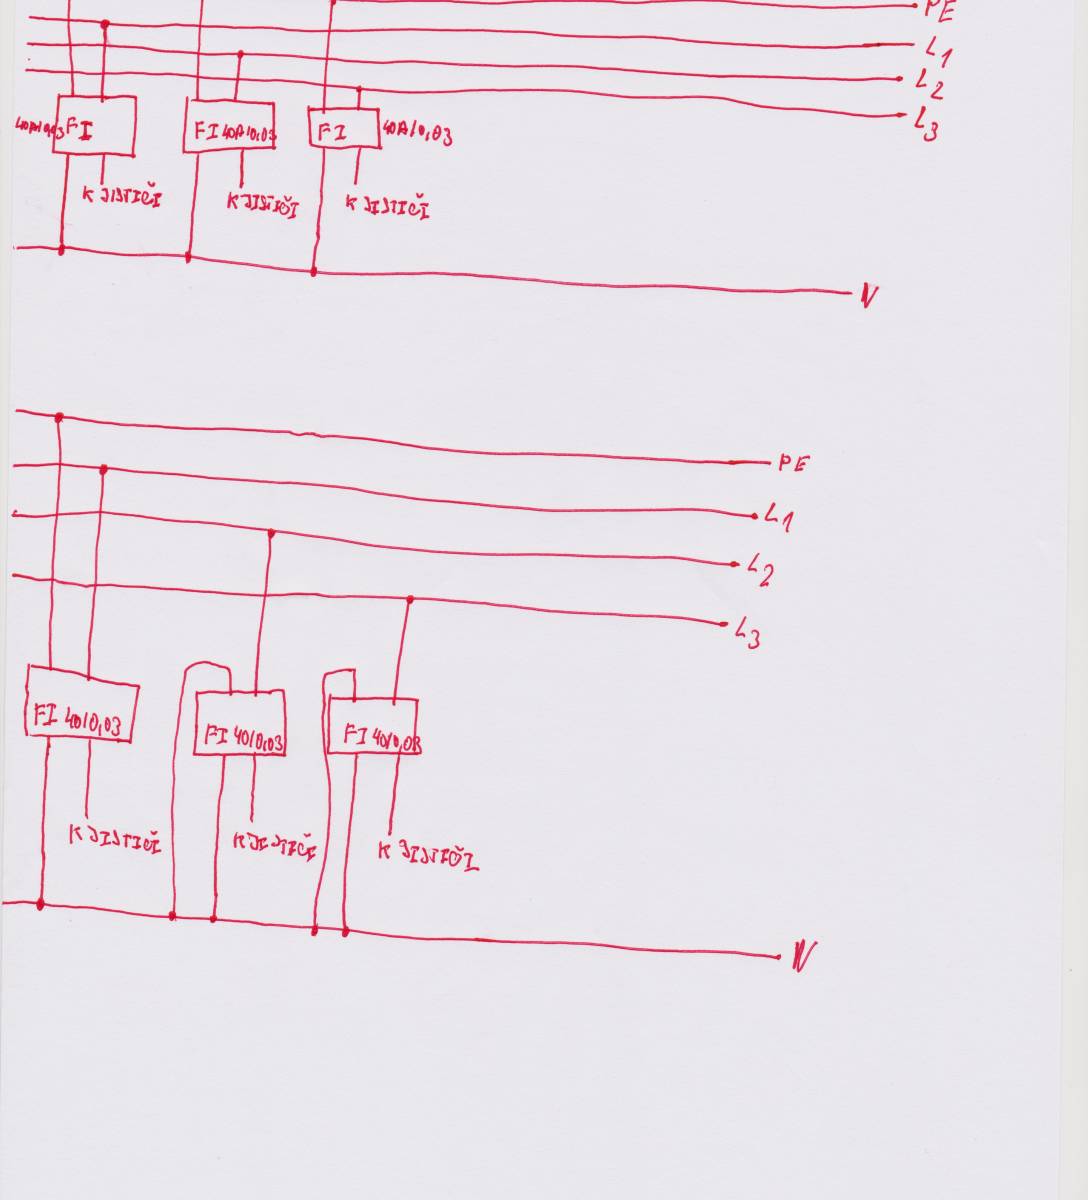 PE
L1
L2
L3
40A/0,03 FI
FI 40A/0,03
FI 40A/0,03
K JISTIČI
K JISTIČI
K JISTIČI
N
PE
L1
L2
L3
FI 40/0,03
FI 40/0,03
FI 40/0,03
K JISTIČI
K JISTIČI
K JISTIČI
N